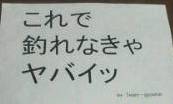 これで
釣れなきゃ
ヤバイッ